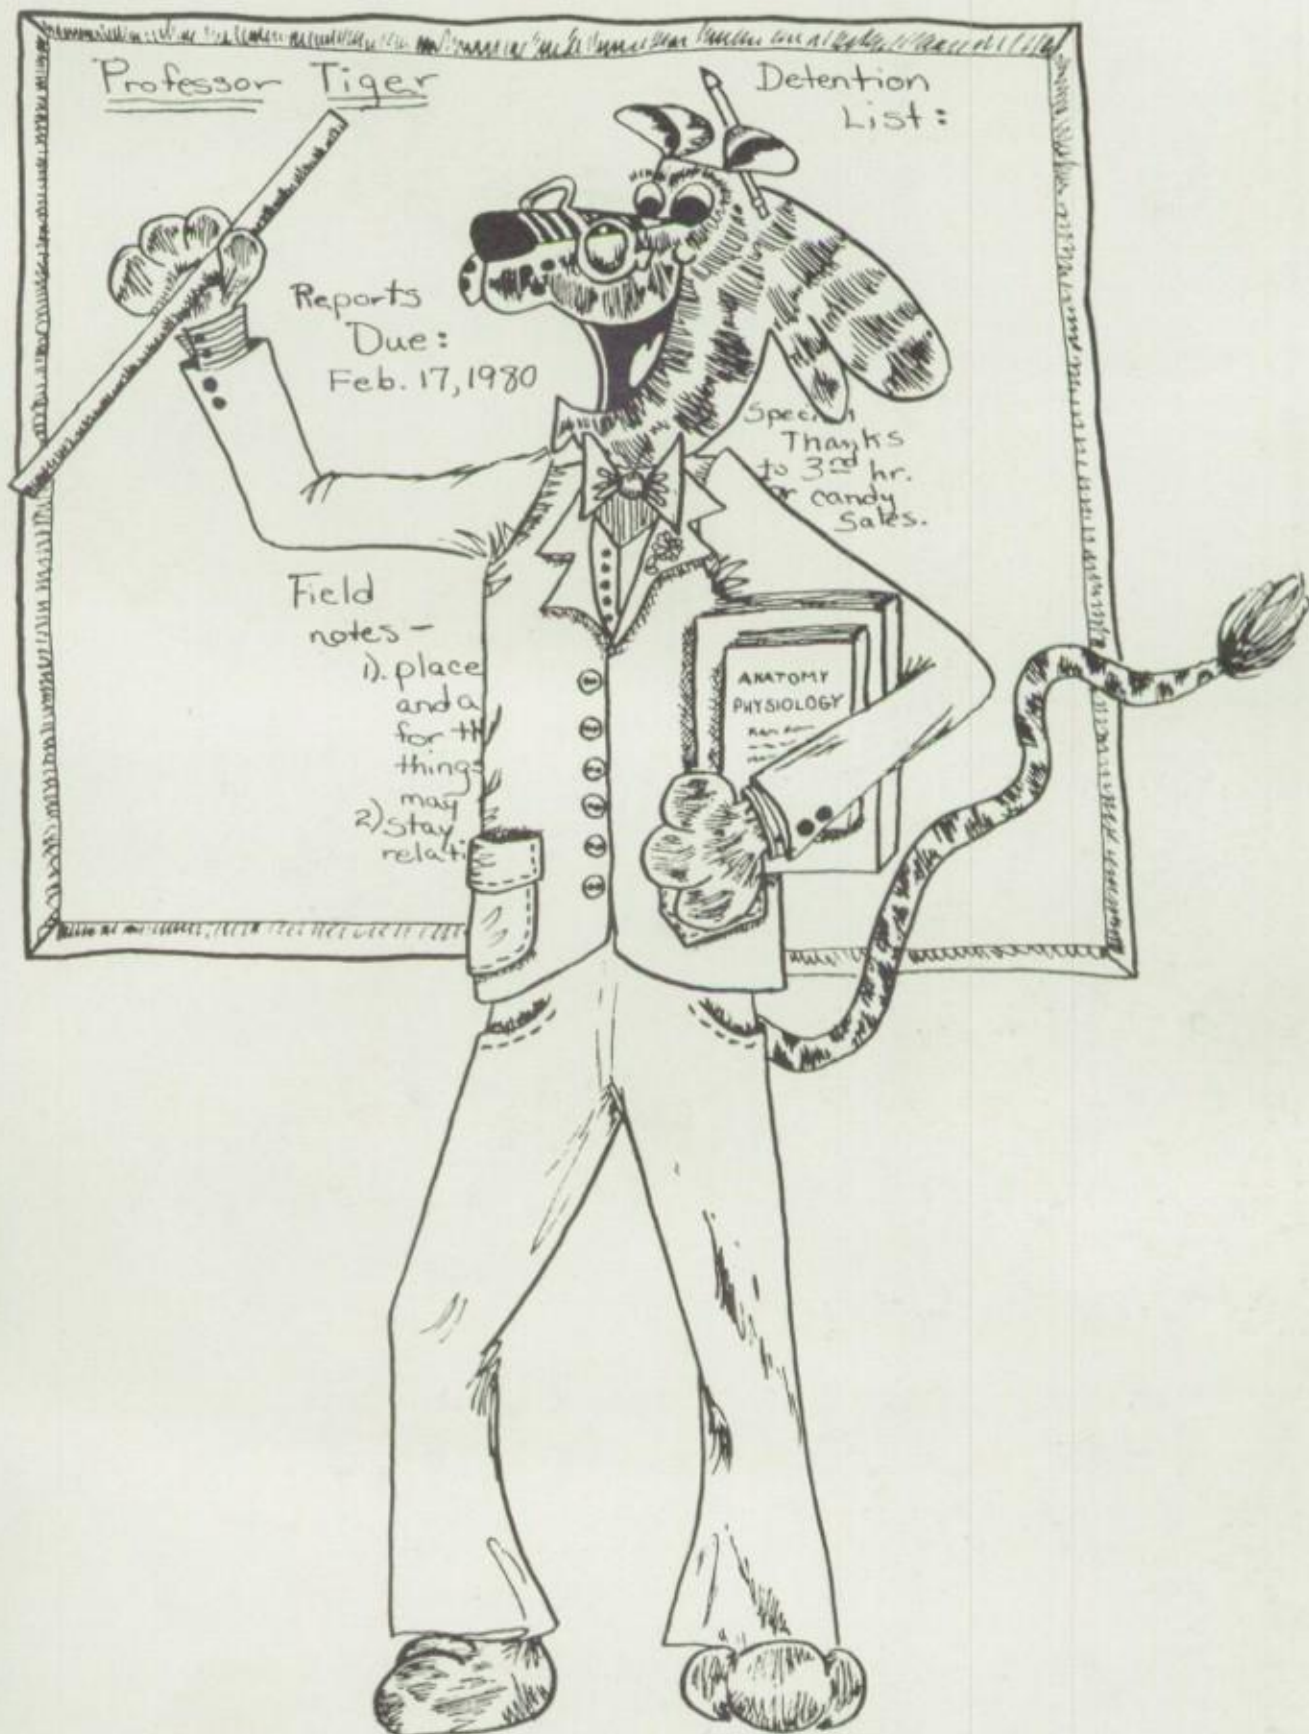 Professor Tiger
Detention
List:
Reports
Due:
Feb. 17, 1980
Thanks
to 3rd hr.
candy
Sales.
Field
notes -
1). place
and a
for th
things
may
2) stay
relati
ANATOMY
PHYSIOLOGY